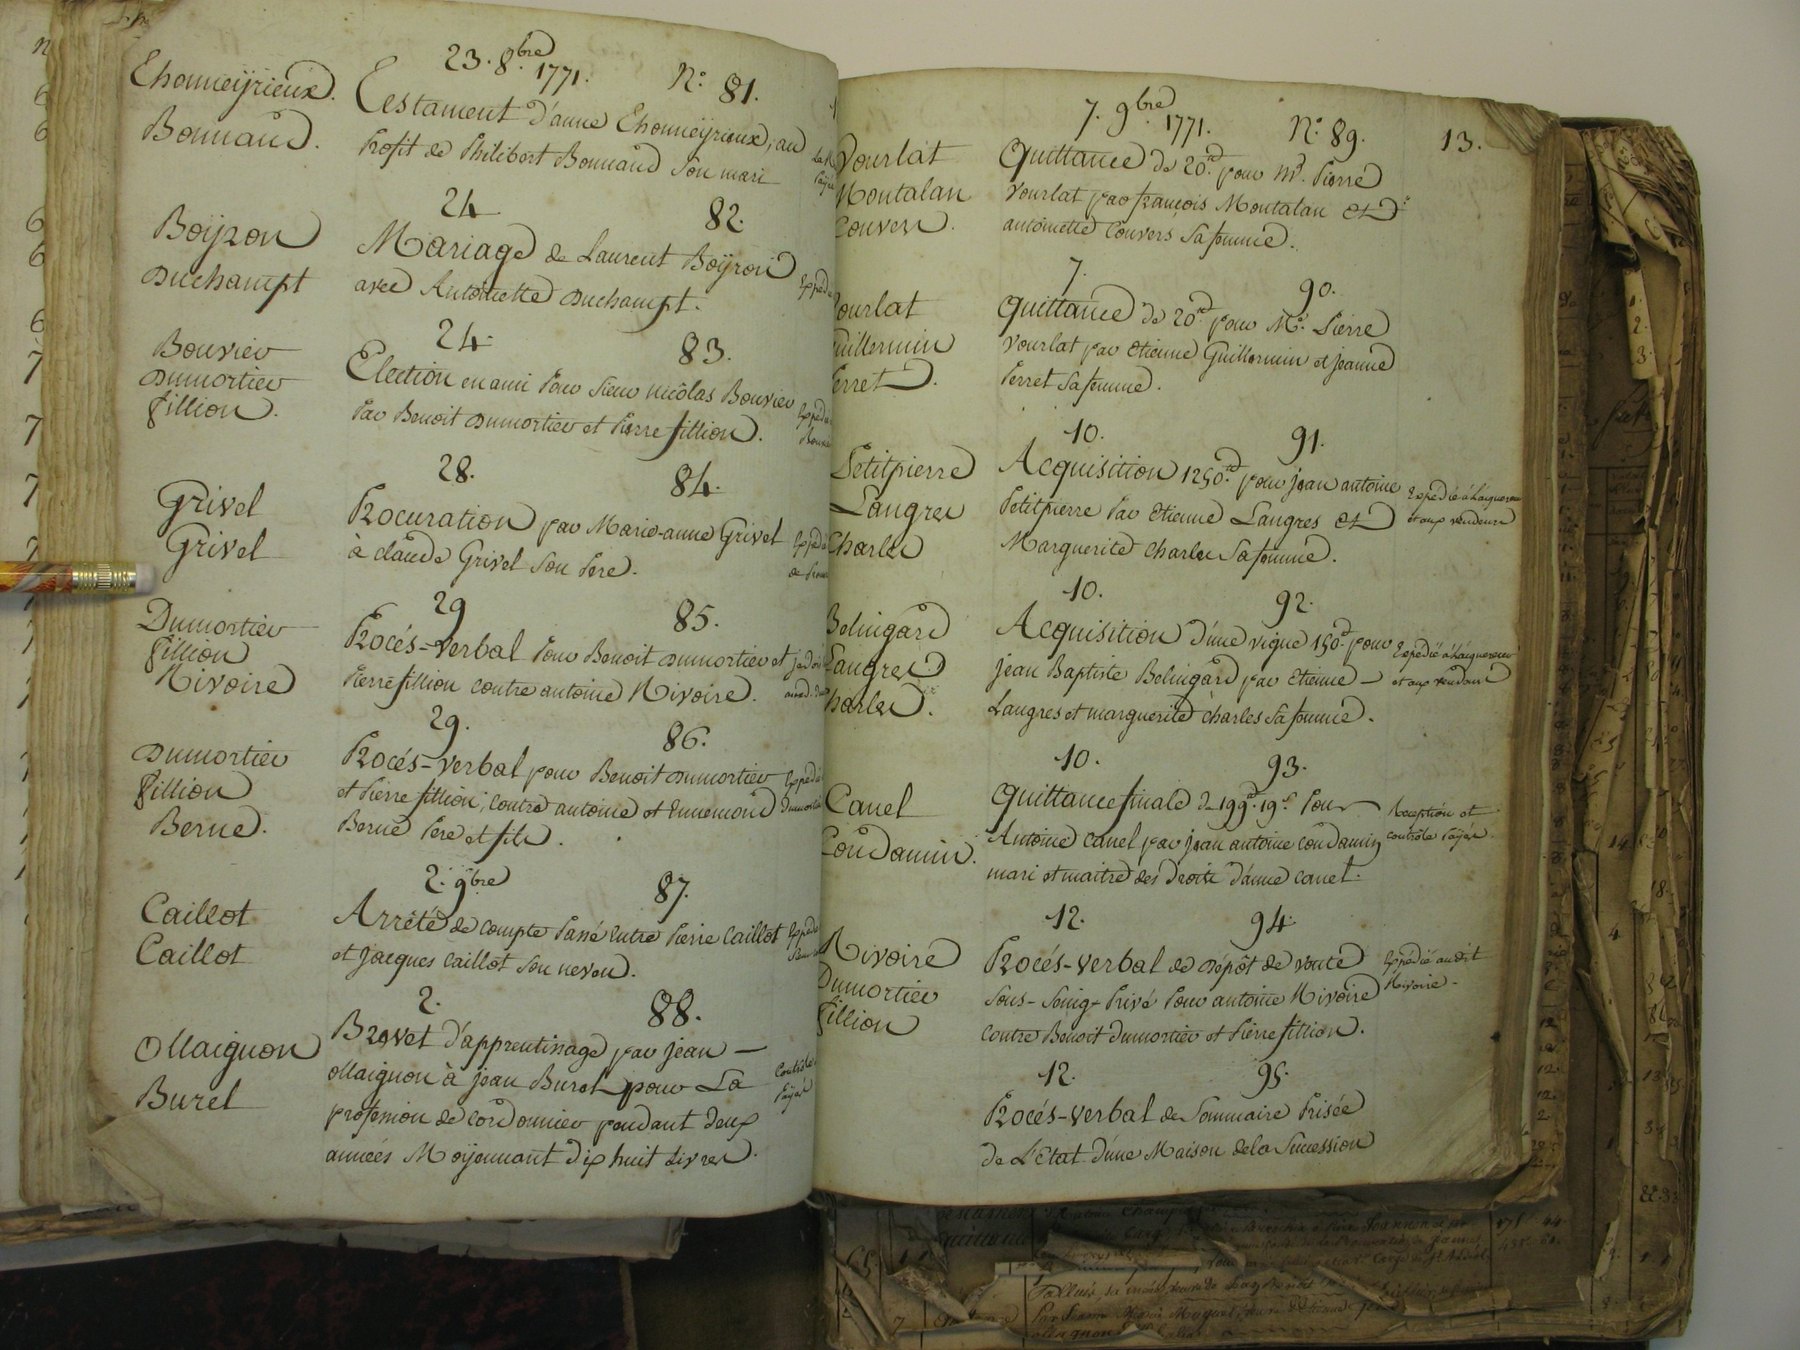 23. 8.bre 1771. N.° 81.
Thonneÿrieux. Testament d'anne Thonneÿrieux, au
Bonnaud. Profit de Philibert Bonnaud son mari
24 82.
Boÿron Mariage de Laurent Boÿron
Duchampt avec Antoinette Duchampt.
24. 83.
Bouvier Election en ami Pour sieur nicolas Bouvier
Dumortier Par Benoit Dumortier et Pierre fillion.
fillion.
28. 84.
Grivel Procuration par Marie-anne Grivel
Grivel à claude Grivel son Pere.
29 85.
Dumortier Procés-verbal Pour Benoit Dumortier et
fillion Pierre fillion contre antoine Rivoire.
Rivoire
29. 86.
Dumortier Procés-verbal pour Benoit Dumortier
fillion et Pierre fillion, contre antoine et Ennemond
Berne. Berne Pere et fils.
2. 9.bre 87.
Caillot Arrêté de compte Passé entre Pierre Caillot
Caillot et Jacques Caillot son neveu.
2. 88.
Ollaignon Brevet d'apprentissage par jean
Burel ollaignon à jean Burel pour La
profession de cordonnier pendant deux
années Moÿennant dix huit Livres.
Contrôle
Payé
7. 9.bre 1771. N.° 89. 13.
Vourlat Quittance de 20.# pour M.r Pierre
Montalan Vourlat par françois Montalan et
Couvers. antoinette Couvers sa femme.
7. 90.
Vourlat Quittance de 20.# pour M.r Pierre
Guillermin Vourlat par Etienne Guillermin et jeanne
Perret. Perret sa femme.
10. 91.
Petitpierre Acquisition 1250.# pour jean antoine
Langres Petitpierre Par Etienne Langres et
Charles Marguerite Charles sa femme.
Expedié à l'acquereur
et aux vendeurs
10. 92.
Belingard Acquisition d'une vigne 150.# pour
Langres jean Baptiste Belingard par Etienne
Charles. Langres et marguerite charles sa femme.
Expedié à l'acquereur
et aux vendeurs
10. 93.
Canel Quittance finale de 199.# 19.s Pour
Coudamin. Antoine Canel par jean antoine Coudamin
mari et maitre des Droits d'anne Canel.
Reception et
contrôle Payés.
12. 94.
Rivoire Procés-verbal de dépôt de vente
Dumortier sous-seing Privé Pour antoine Rivoire
fillion contre Benoit Dumortier et Pierre fillion.
Expedié audit
Rivoire
12. 95.
Procés-verbal de Sommaire Prisée
de L'Etat d'une Maison de la Succession